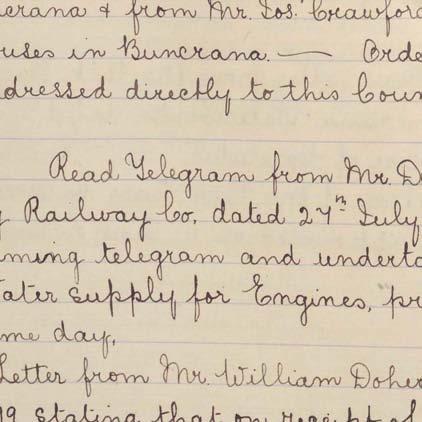 crana & from Mr. Jos. Crawford
uses in Buncrana. — Orde
dressed directly to this Coun
Read Telegram from Mr. D
y Railway Co, dated 27th July
ming telegram and underta
ater supply for Engines, pr
me day,
Letter from Mr. William Doher
19 stating that on receipt of